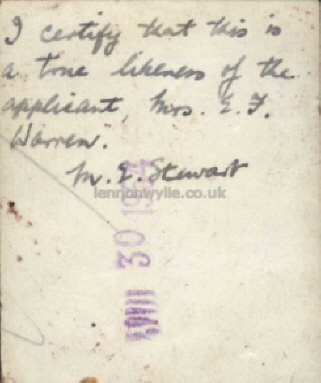 I certify that this is
a true likeness of the
applicant, Mrs. E. F.
Warren.
M. E. Stewart
lennonwylie.co.uk
30